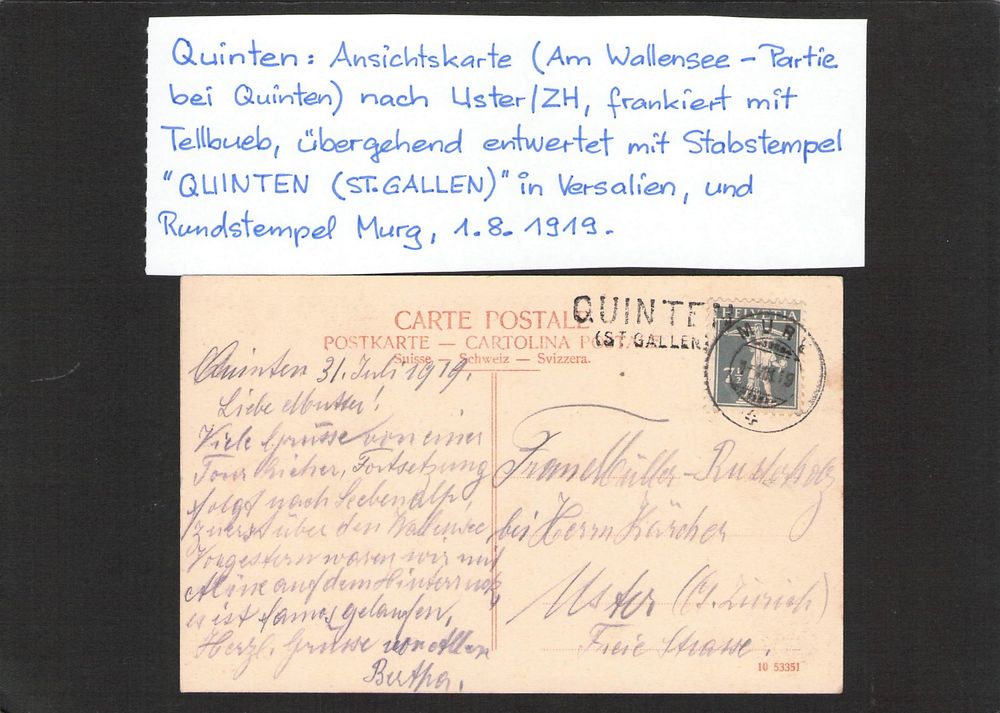 Quinten: Ansichtskarte (Am Wallensee – Partie
bei Quinten) nach Uster/ZH, frankiert mit
Tellbueb, übergehend entwertet mit Stabstempel
"QUINTEN (ST.GALLEN)" in Versalien, und
Rundstempel Murg, 1.8.1919.
QUINTEN
(ST. GALLEN)
HELVETIA
7½
MURG
CARTE POSTALE
POSTKARTE — CARTOLINA POSTALE
Suisse — Schweiz — Svizzera.
Quinten 31. Juli 1919.
Liebe Mutter!
Viele Grüsse von einer
Tour hieher, Fortsetzung
folgt nach Seebenalp,
zuerst über den Wallensee
Vorgestern waren wir mit
auf dem Hinterruck
es ist famos gelaufen,
Herzl. Grüsse von Allen
Bertha.
Frau Müller-
bei Herrn Kärcher
Uster (Ct. Zürich)
Freie Strasse.
10 53351